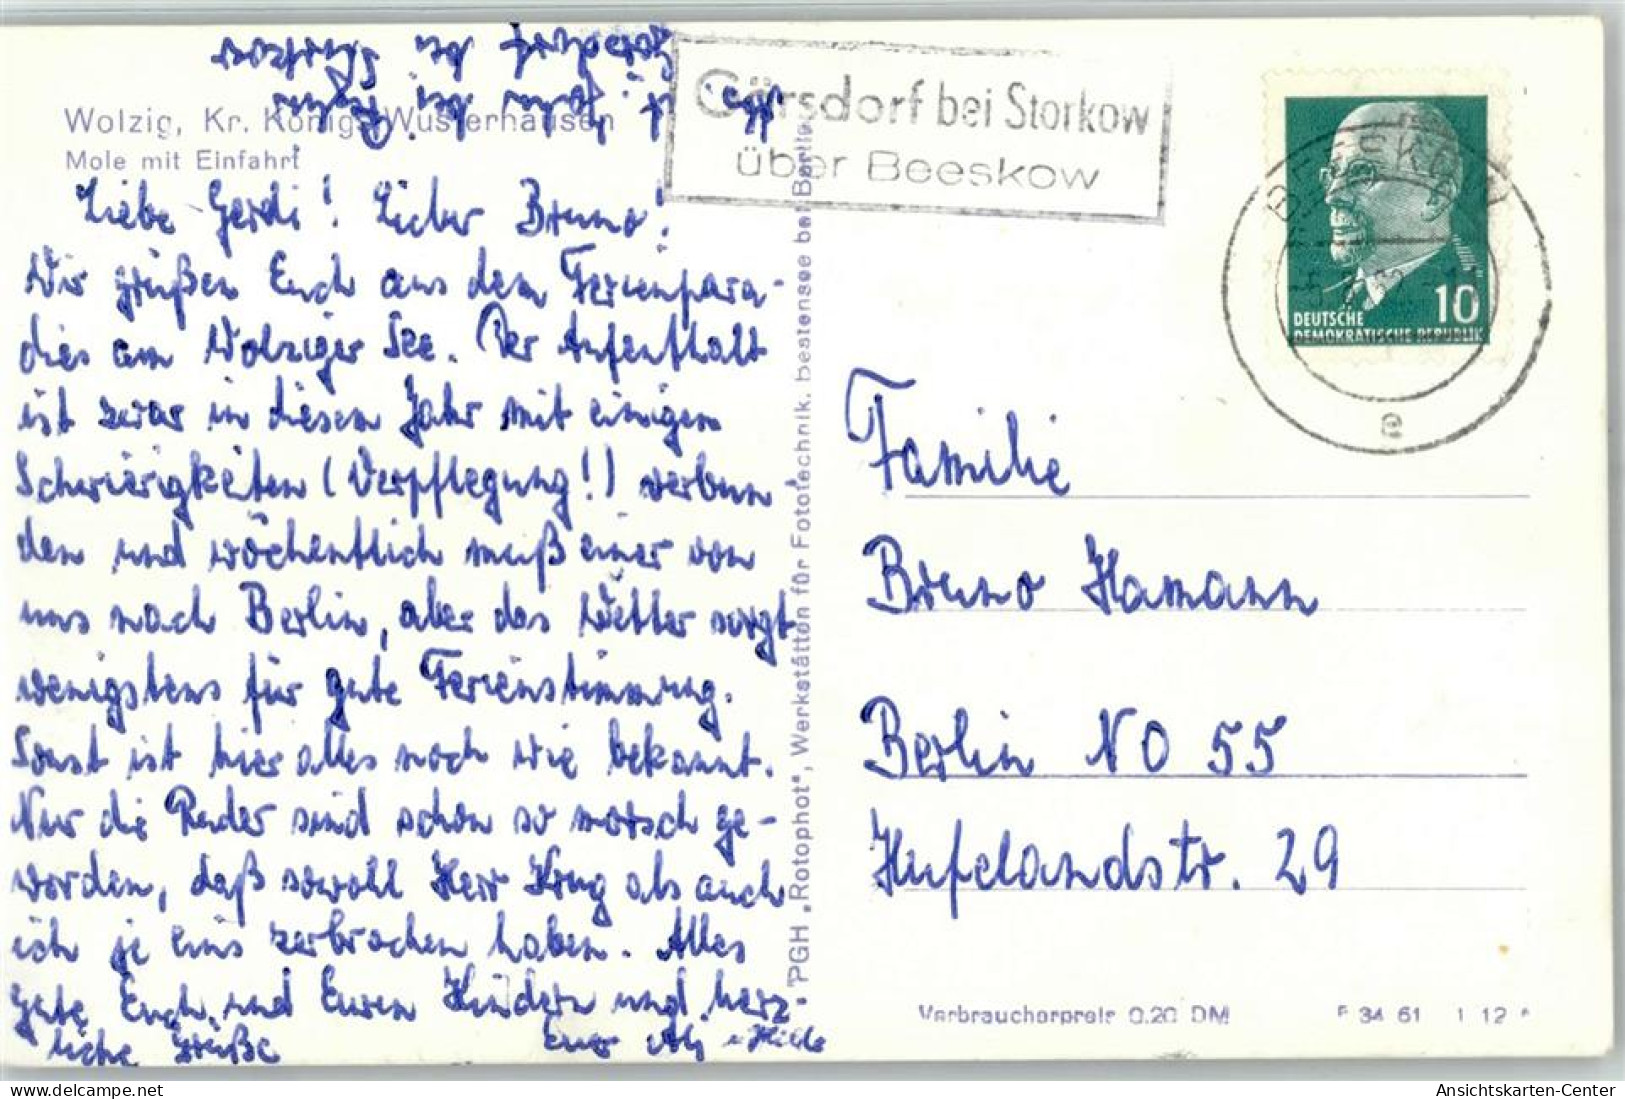 Wolzig, Kr. Königs Wusterhausen
Mole mit Einfahrt
Görsdorf bei Storkow
über Beeskow
Liebe Gerdi! Lieber Bruno!
Wir grüßen Euch aus dem Ferienpara-
dies am Wolziger See. Der Aufenthalt
ist zwar in diesem Jahr mit einigen
Schwierigkeiten (Verpflegung!) verbun-
den und wöchentlich muß einer von
uns nach Berlin, aber das Wetter sorgt
wenigstens für gute Ferienstimmung.
Sonst ist hier alles noch wie bekannt.
Nur die Ruder sind schon so morsch ge-
worden, daß sowohl Herr Krug als auch
ich je eins zerbrochen haben. Alles
Gute Euch und Euren Kindern und herz-
liche Grüße
Euer u. Hilde
Görsdorf bei Storkow
PGH „Rotophot", Werkstätten für Fototechnik, bestensee bei Berlin
BEESKOW
e
10
DEUTSCHE
DEMOKRATISCHE REPUBLIK
Familie
Bruno Hamann
Berlin NO 55
Hufelandstr. 29
Verbraucherpreis 0,20 DM
34 61 1 12
delcampe.net
Ansichtskarten-Center